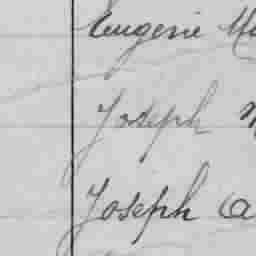 Eugene
Joseph
Joseph